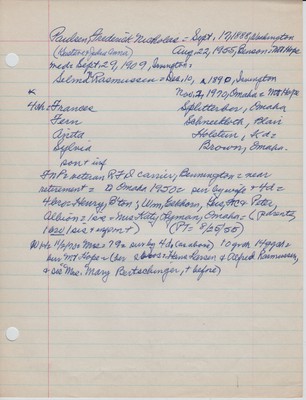 Paulsen, Frederick Nicholas = Sept. 17, 1888, Washington
(Restore = John Anna) Aug. 22, 1955, Benson = Mt Hope
md = Sept. 29, 1909, Irvington =
Selma Rasmussen = Dec. 10, 1890, Irvington
Nov. 7, 1970, Omaha = Mt Hope
4 ch = Frances Splittorber, Omaha
Fern Schneekloth, Blair
Anita Holstein, Ks =
Sylvia Brown, Omaha.
son + inf
FN P = veteran RFD carrier, Bennington = near
retirement = D Omaha 1950 = surv by wife + 4 d =
4 bro = Henry, Wm, Gus, & Peter,
Albion = 1 sis = Mrs Kitty Lyman, Omaha = (parents,
1 bro 1 sis + (PT = 8/25/55)
Mrs = 79 = surv by 4 d (as above) 10 gch 14 ggch =
bur Mt Hope = (her bros = Hans, & Alfred Rasmussen,
& sis Mrs. Mary Bertschinger, + before)